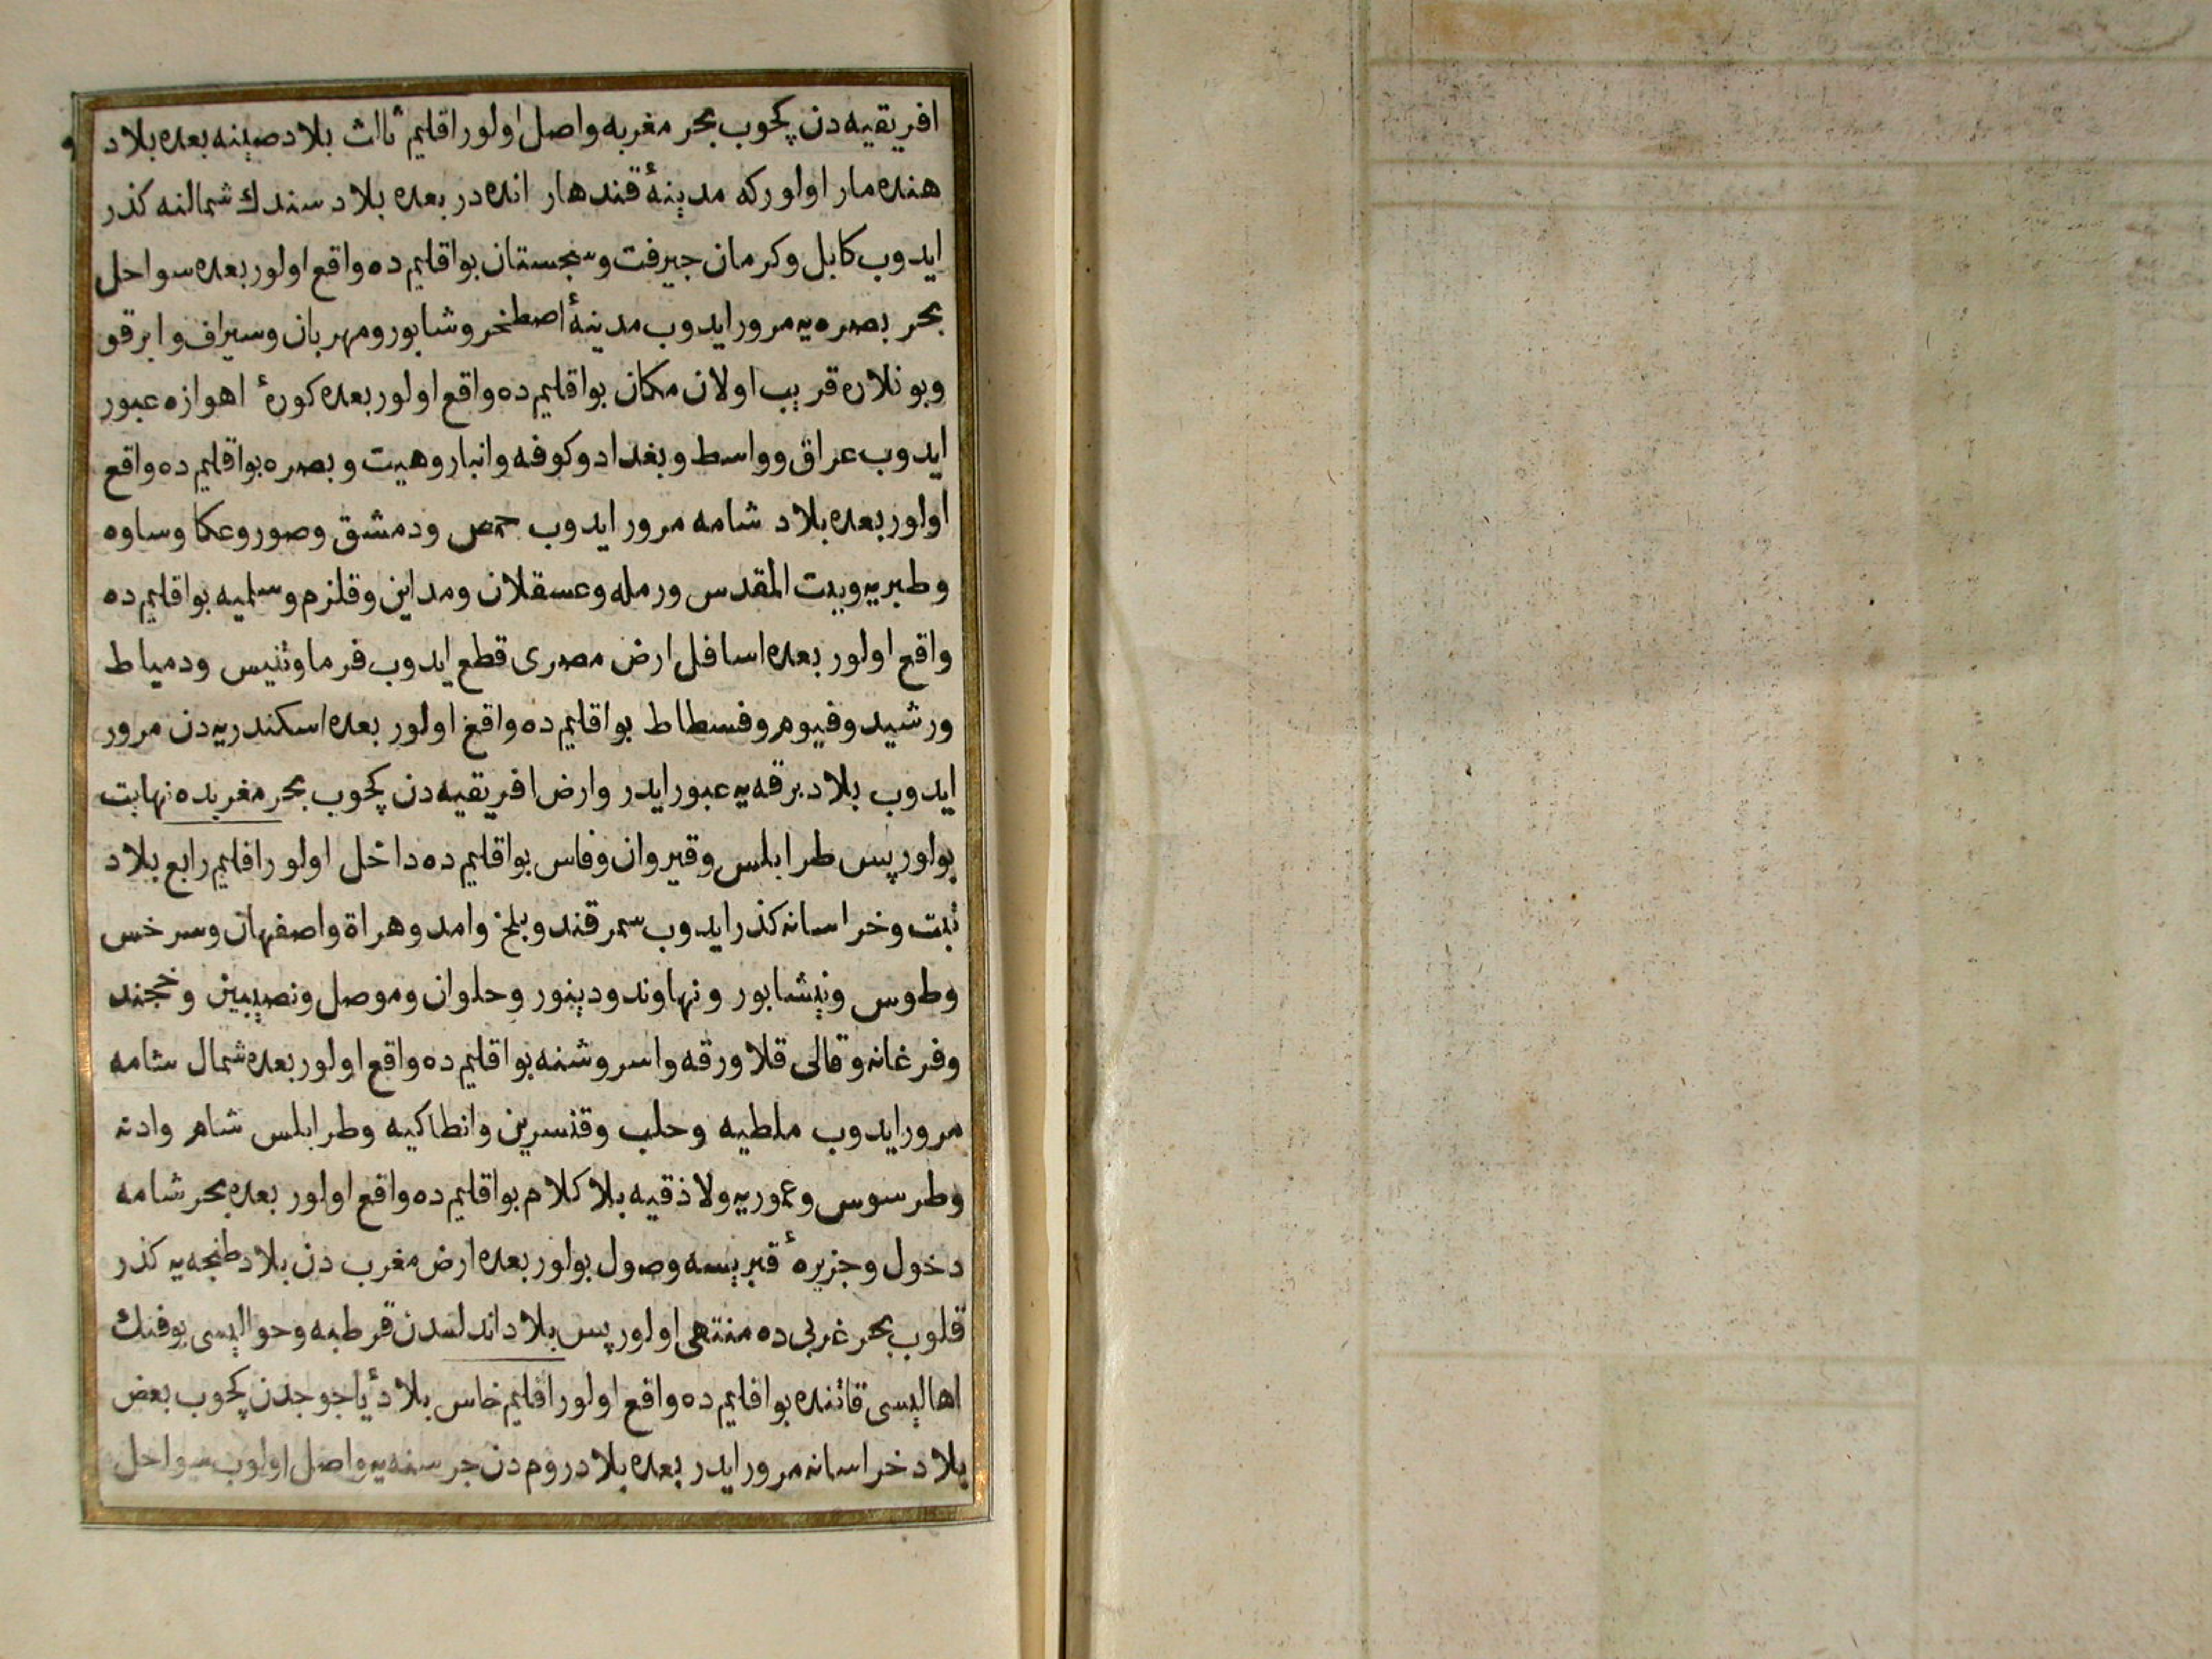 افريقيه دن كچوب بحر مغربه واصل اولور اقليم ثالث بلاد صينه بعده بلاد
هنده مار اولور كه مدينۀ قندهار انده در بعده بلاد سندك شمالنه كذر
ايدوب كابل وكرمان جيرفت وسجستان بو اقليم ده واقع اولور بعده سواحل
بحر بصره يه مرور ايدوب مدينۀ اصطخر وشابور ومهربان وسيراف وابرقو
وبونلاره قريب اولان مكان بو اقليم ده واقع اولور بعده كورۀ اهوازه عبور
ايدوب عراق وواسط وبغداد وكوفه وانبار وهيت وبصره بو اقليم ده واقع
اولور بعده بلاد شامه مرور ايدوب حمص ودمشق وصور وعكا وساوه
وطبريه وبيت المقدس ورمله وعسقلان ومداين وقلزم وسلميه بو اقليم ده
واقع اولور بعده اسافل ارض مصرى قطع ايدوب فرما وتنيس ودمياط
ورشيد وفيوم وفسطاط بو اقليم ده واقع اولور بعده اسكندريه دن مرور
ايدوب بلاد برقه يه عبور ايدر وارض افريقيه دن كچوب بحر مغربده نهايت
بولور پس طرابلس وقيروان وفاس بو اقليم ده داخل اولور اقليم رابع بلاد
تبت وخراسانه كذر ايدوب سمرقند وبلخ وامد وهراة واصفهان وسرخس
وطوس ونيشابور ونهاوند ودينور وحلوان وموصل ونصيبين وخجند
وفرغانه وقالى قلا ورقه واسروشنه بو اقليم ده واقع اولور بعده شمال شامه
مرور ايدوب ملطيه وحلب وقنسرين وانطاكيه وطرابلس شام وادنه
وطرسوس وعموريه ولاذقيه بلا كلام بو اقليم ده واقع اولور بعده بحر شامه
دخول وجزيرۀ قبريسه وصول بولور بعده ارض مغرب دن بلاد طنجه يه كذر
قلوب بحر غربى ده منتهى اولور پس بلاد اندلسدن قرطبه وحواليسى بو فنك
اهاليسى قاتنده بو اقليم ده واقع اولور اقليم خامس بلاد ياجوجدن كچوب بعض
بلاد خراسانه مرور ايدر بعده بلاد روم دن واصل اولوب سواحل